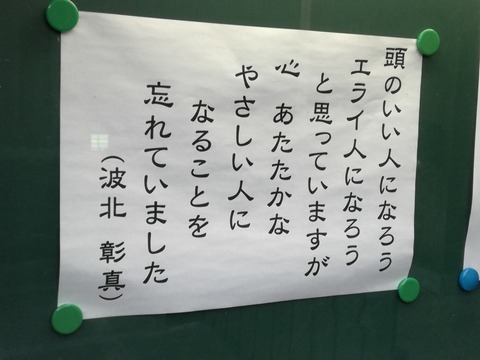 頭のいい人になろう
エライ人になろう
と思っていますが
心 あたたかな
やさしい人に
なることを
忘れていました
(波北 彰真)